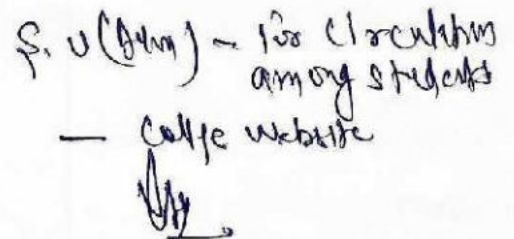 S. V (Adm) - for circulation
among students
- college website